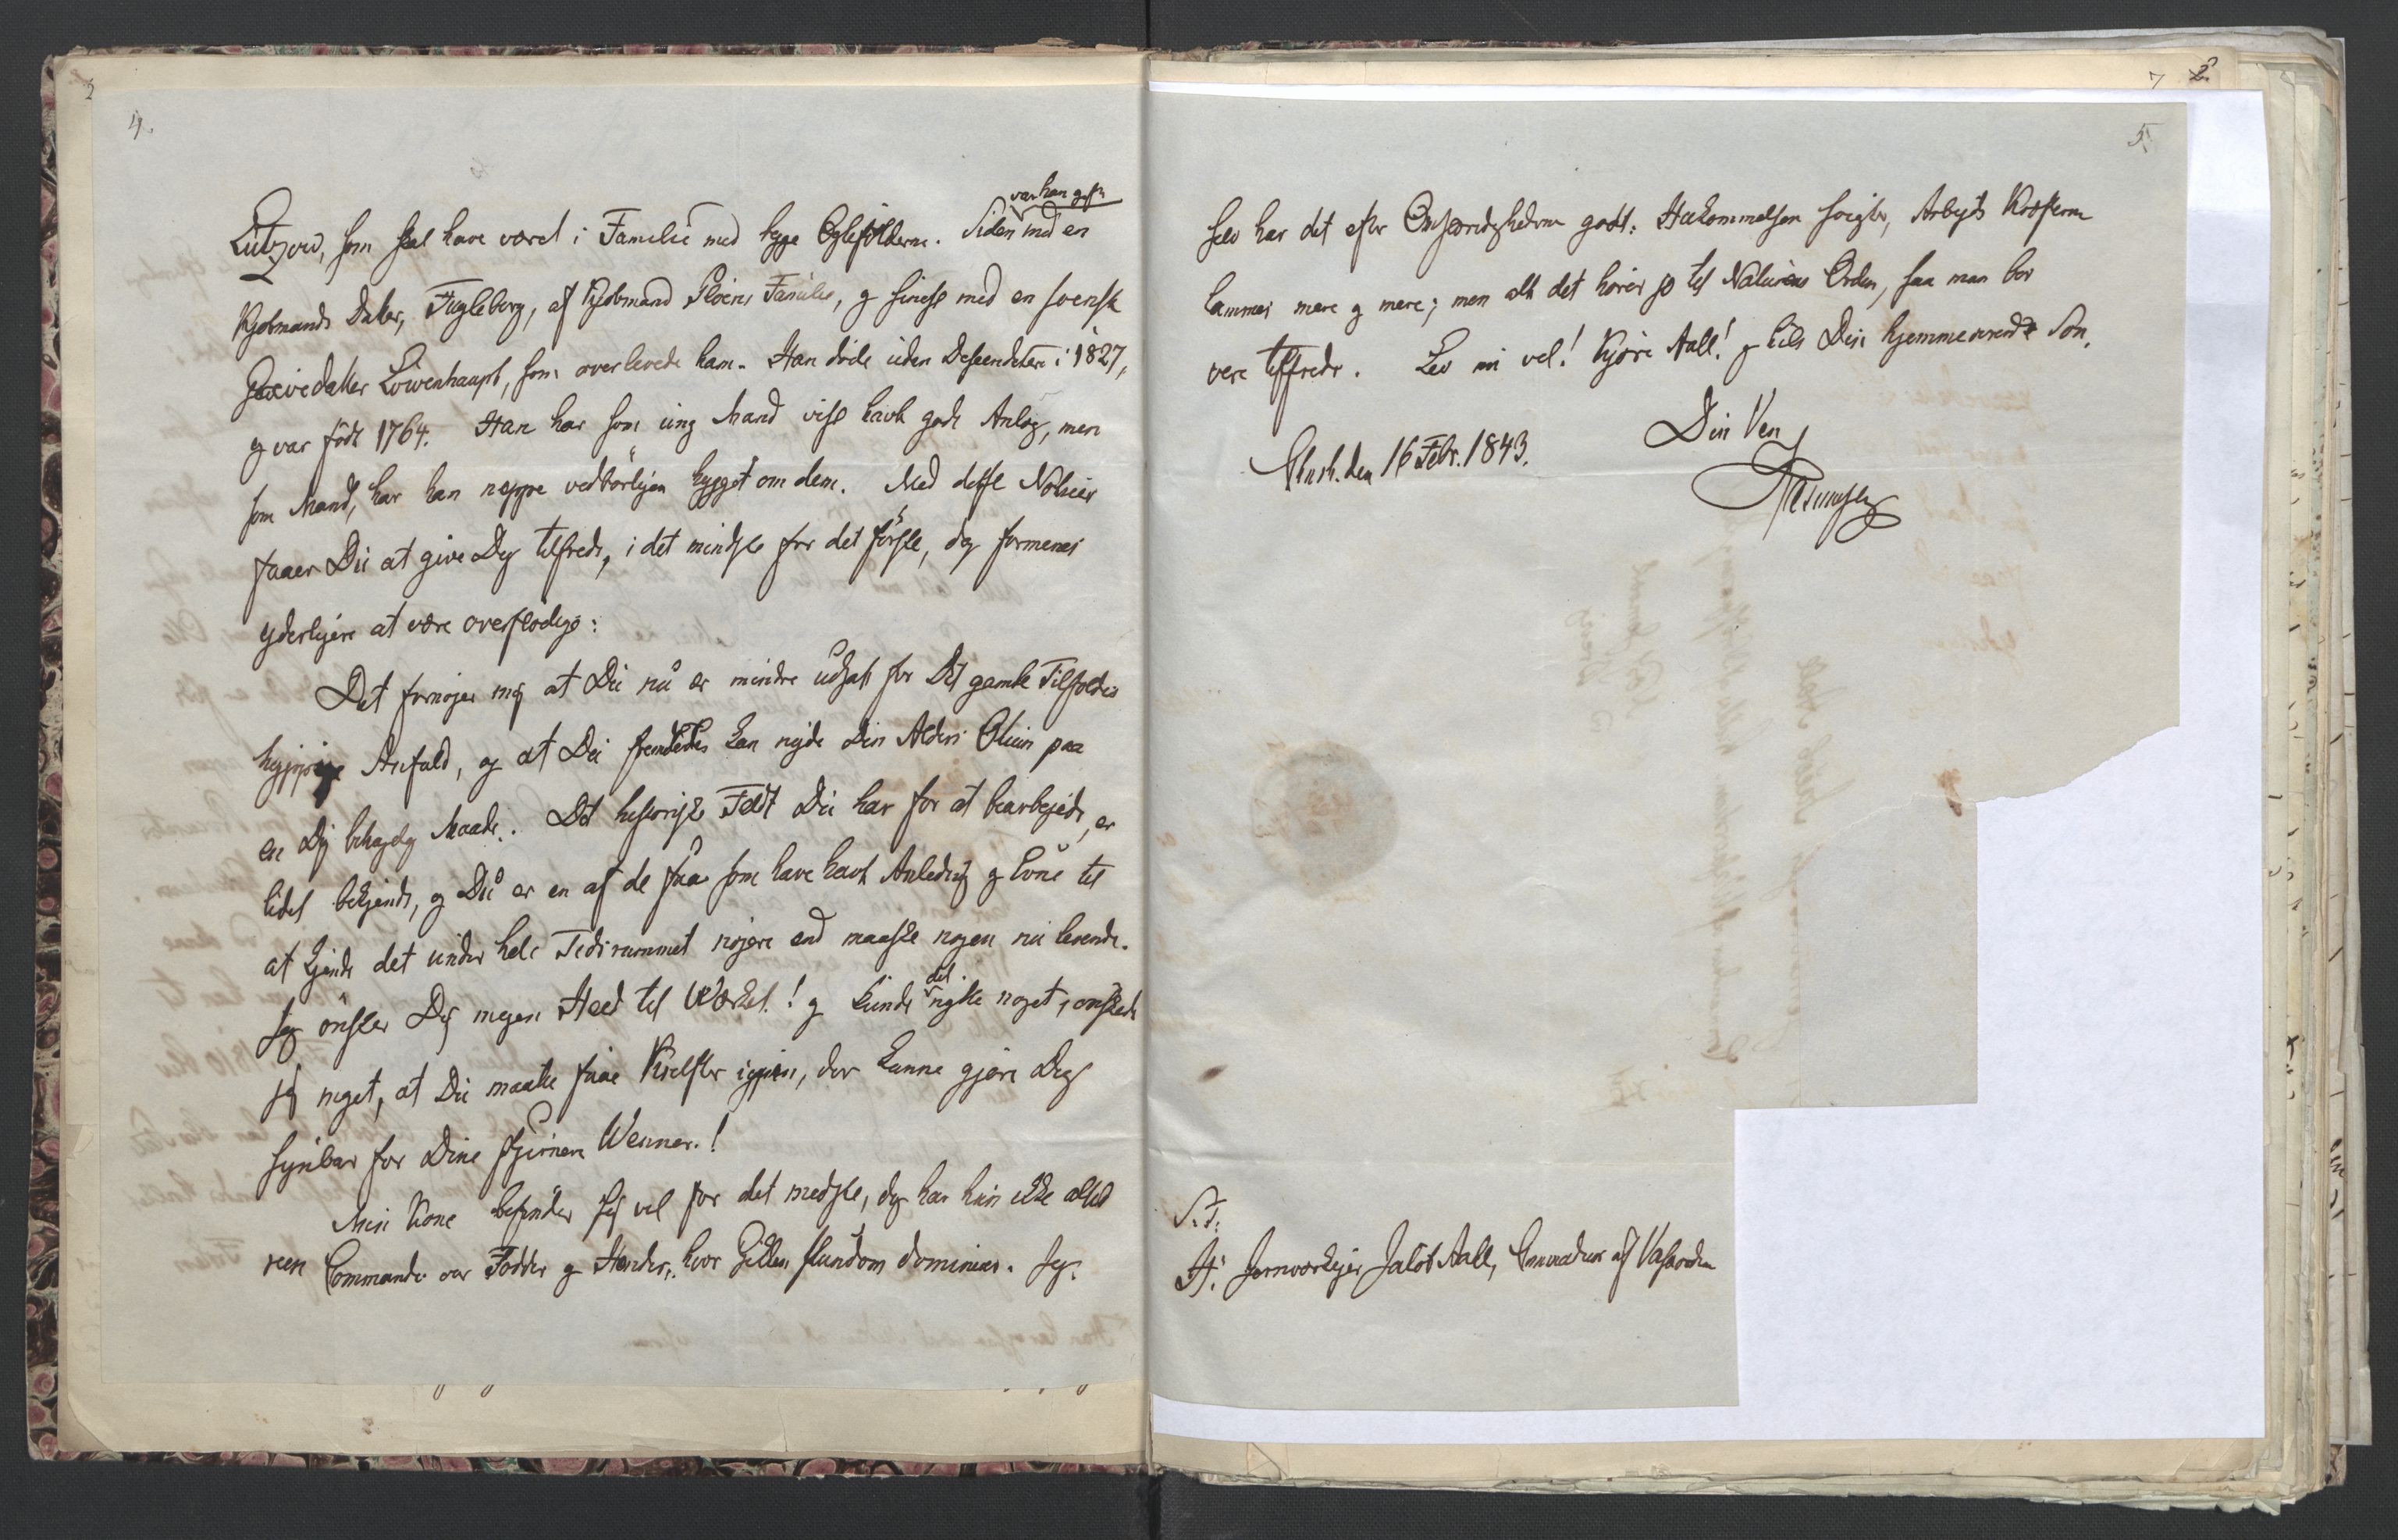 4.
Lützow, som skal have været i Familie med begge Deleforældrene. Siden var han gift med en
Kjøbmands Datter, Fugleberg, af Kjøbmand Ploens Familie, og sidst med en svensk
Grevedatter Löwenhaupt, som overlevede ham. Han døde uden Descendenter i 1827,
og var født 1764. Han har som ung Mand vist havt gode Anlæg, men
som Mand, har han neppe vedbørligen hygget om dem. Med disse Notiser
faaer Du at give Dig tilfreds, i det mindste for det første, dog formenes
yderligere at være overflødige:
Det fornøjer mig at Du nu er mindre udsat for Dit gamle Tilfældes
hyppige Anfald, og at Du fremdeles kan nyde Din Alders Otium paa
en Dig behagelig Maade. Det historiske Feldt Du har for at bearbejde, er
lidet bekjendt, og Du er en af de faa som have havt Anledning og Evne til
at kjende det under hele Tidsrummet nøjere end maaske nogen nu levende.
Jeg ønsker Dig megen Held til Værket! og kunde det nytte noget, ønskede
jeg meget, at Du maatte faae Kræfter igjen, der kunne gjøre Dig
synbar for Dine fjernere Venner!
Min Kone befinder sig vel for det medste, dog har hun ikke altid
reen Commando over Fødder og Hænder, hvor Gigten stundom dominerer. Jeg
5.
selv har det efter Omstændighederne godt: Hukommelsen svigter, Arbejds Kræfterne
lammes mere og mere; men alt det hører jo til Naturens Orden, saa man bør
være tilfreds. Lev nu vel! Kjære Aall! og hils Din hjemmeværende Søn.
Din Ven
Chrsh. den 16 Febr. 1843.
S. T.
Hr. Jernværkejer Jacob Aall, Commandeur af Vasaorden